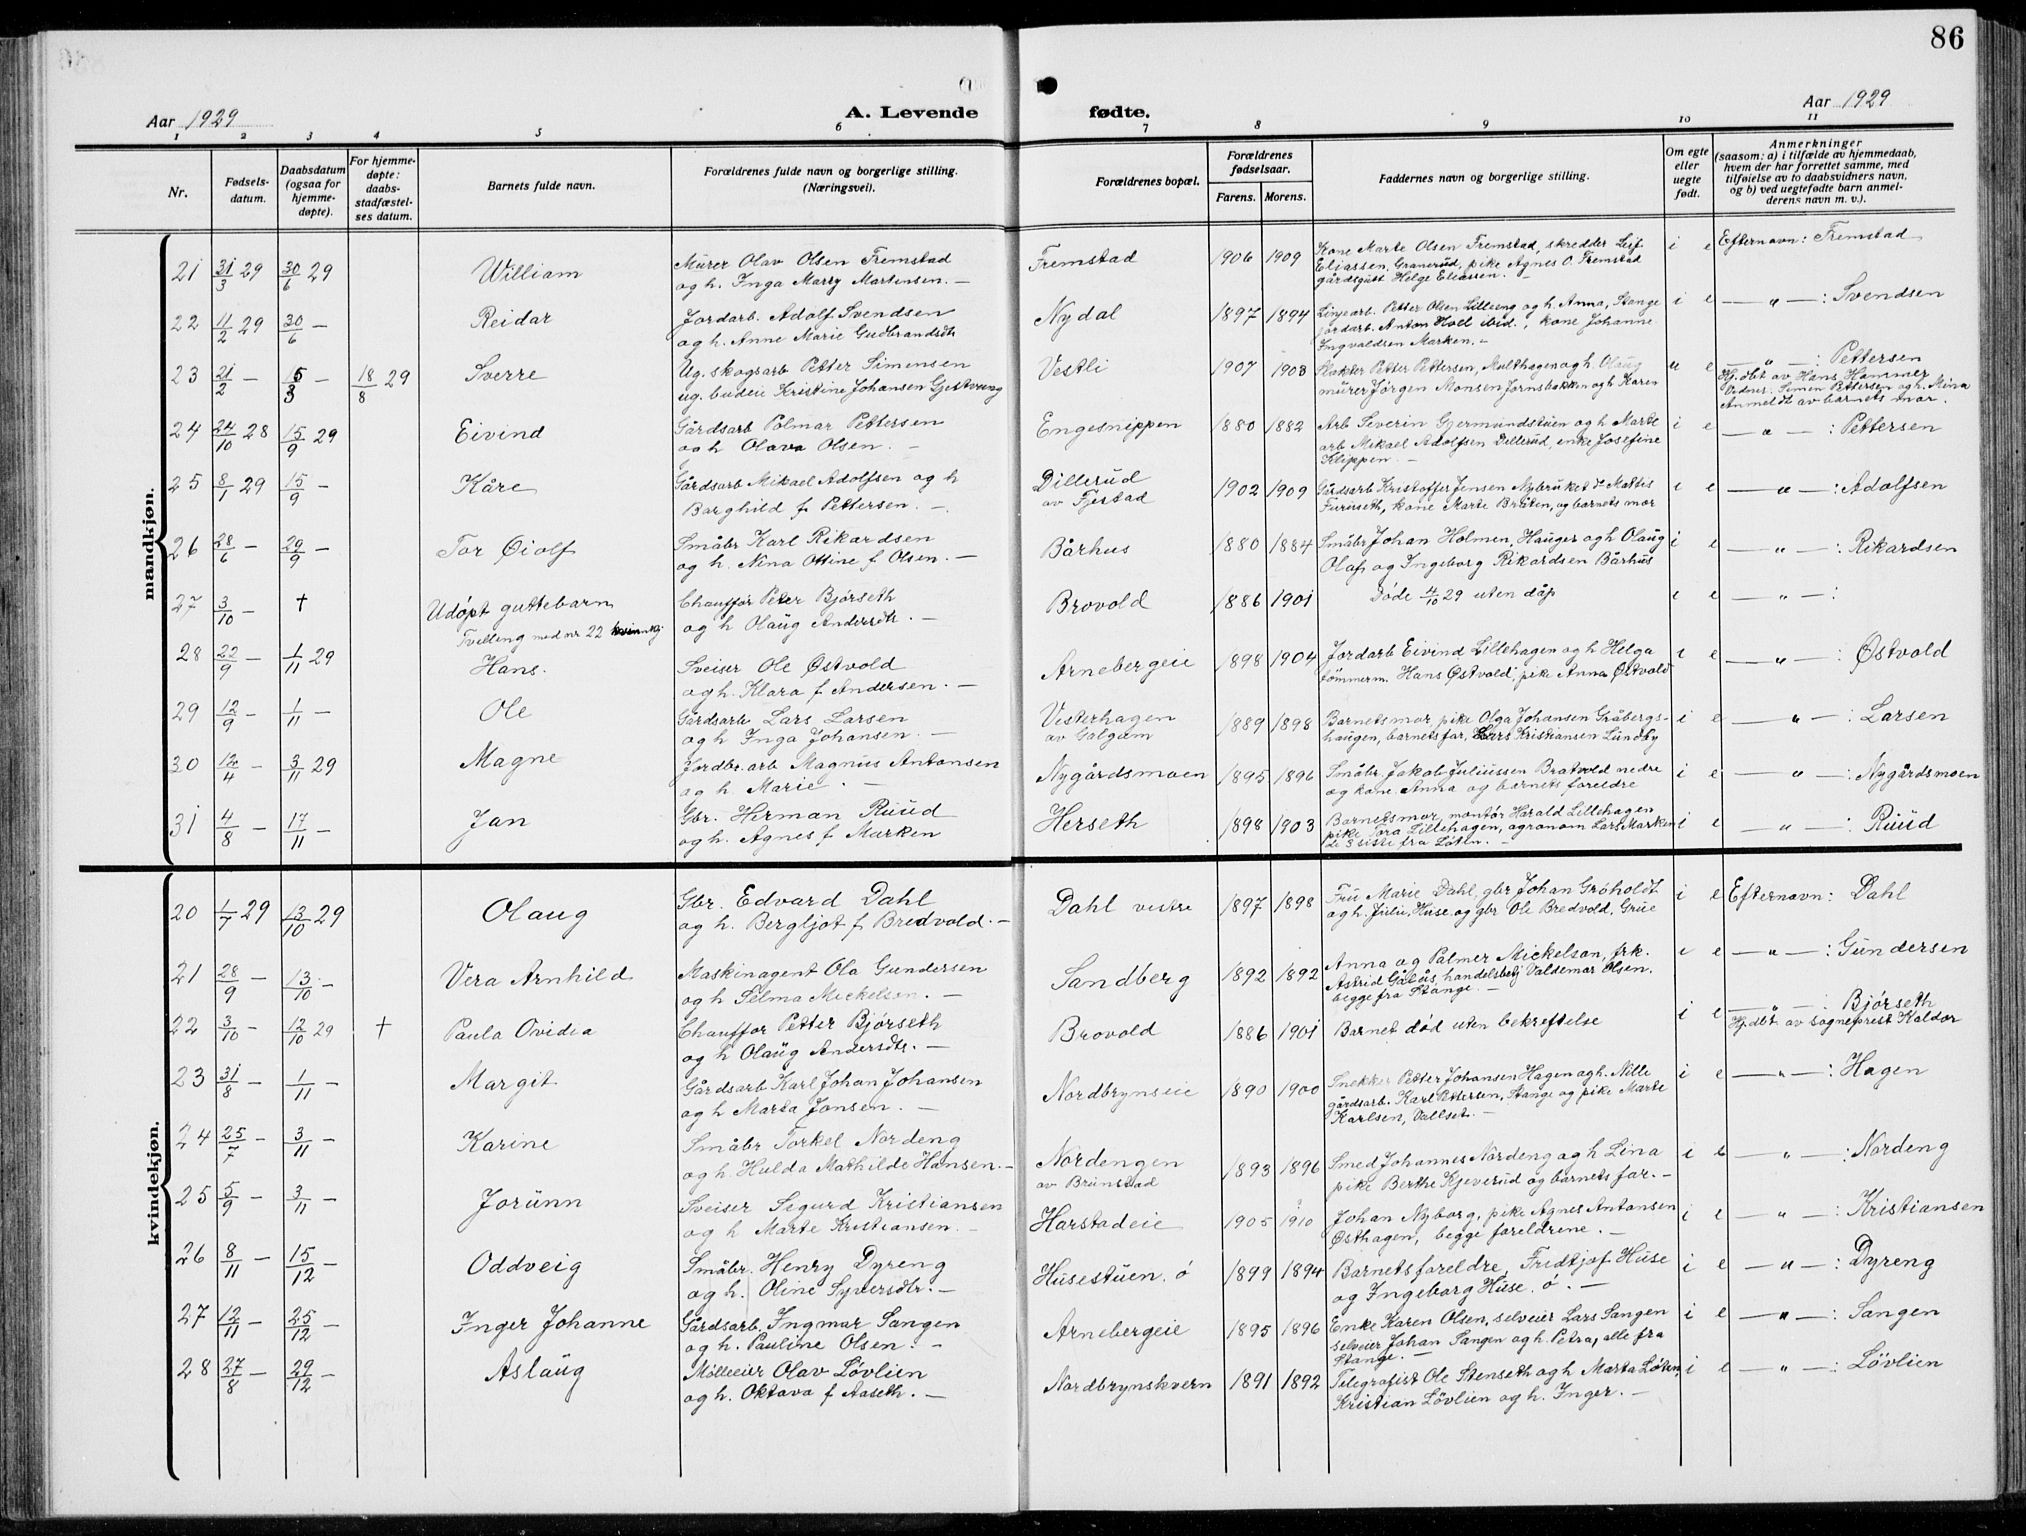 86
Aar 1929
A. Levende fødte.
Aar 1929
1 2 3 4 5 6 7 8 9 10 11
Nr.
Fødsels-
datum.
Daabsdatum
(ogsaa for
hjemme-
døpte).
For hjemme-
døpte:
daabs-
stadfæstel-
ses datum.
Barnets fulde navn.
Forældrenes fulde navn og borgerlige stilling.
(Næringsvei).
Forældrenes bopæl.
Forældrenes
fødselsaar.
Farens. Morens.
Faddernes navn og borgerlige stilling.
Om egte
eller
uegte
født.
Anmerkninger
(saasom: a) i tilfælde av hjemmedaab,
hvem der har forrettet samme, med
tilføielse av to daabsvidners navn,
og b) ved uegtefødt barn anmel-
derens navn m. v.).
mandkjøn.
21 31/3 29 30/6 29 William
Murer Olav Olsen Fremstad
og h. Inga Marry Martinsen. —
Fremstad 1906 1909
Kone Marte Olsen Fremstad, skredder Leif
Eliassen, Granerud, pike Agnes O. Fremstad
gårdsgutt Helge Eliassen. —
i e Efternavn: Fremstad
22 11/2 29 30/6 — Reidar
Jordarb. Adolf Svendsen
og h. Anne Marie Gudbrandsdtr
Nydal 1897 1894
Linjearb. Petter Olsen Lilleeng og h. Anna, Stange
jordarb. Anton Hoel ibid., kone Johanne
Ingvaldsen Marken. —
i e — „ — : Svendsen
23 21/2 — 15/3 — 18/8 29 Sverre
Ug. skogsarb Petter Simensen
ug. budeie Kristine Johansen Gjestvang
Vestli 1907 1908
Slakter Petter Pettersen, Multhagen og h. Olaug
murer Jørgen Monsen Jernsbakken og h Karen
u e — „ — : Pettersen
Hj.dbt av Hans Hammer
Vidner: Simen Pettersen og h. Mina
Anmeldt av barnets mor.
24 24/10 28 15/9 29 Eivind
Gårdsarb Polmar Pettersen
og h Olava Olsen. —
Engesnippen 1880 1882
Arb Severin Gjermundstuen og h Marte
arb Mikael Adolfsen Dillerud, enke Josefine
Klippen —
i e — „ — : Pettersen
25 8/1 29 15/9 — Kåre
Gårdsarb Mikael Adolfsen og h
Borghild f Pettersen. —
Dillerud
av Fjestad
1902 1909
Gårdsarb Kristoffer Jensen Nybruket d Mattis
Furuseth, kone Marte Bråten, og barnets mor
i e — „ — : Adolfsen
26 28/6 — 29/9 — Tor Øiolf
Småbr Karl Rikardsen
og h. Nina Ottine f Olsen. —
Bårhus 1880 1884
Småbr Johan Holmen, Hauger og h Olaug
Olaf og Ingeborg Rikardsen Bårhus
i e — „ — : Rikardsen
27 3/10 — † Udøpt guttebarn
Tvilling med nr 22 kvinnekj
Chauffør Peter Bjørseth
og h Olaug Andersdtr. —
Brovold 1886 1901
Døde 4/10 29 uten dåp
i e — „ — :
28 22/9 — 1/11 29 Hans.
Sveiser Ole Østvold
og h. Klara f Andersen. —
Arnebergeie 1898 1904
Jordarb Eivind Lillehagen og h Helga
tømmerm. Hans Østvold, pike Anna Østvold
i e — „ — : Østvold
29 12/9 — 1/11 — Ole
Gårdsarb Lars Larsen
og h Inga Johansen. —
Vesterhagen
av Galgum
1889 1898
Barnets mor, pike Olga Johansen Gråbergs-
haugen, barnets far, Lars Kristiansen Lundby
i e — „ — : Larsen
30 12/4 — 3/11 29 Magne
Jordbr.arb Magnus Antonsen
og h. Marie. —
Nygårdsmoen 1895 1896
Småbr. Jakob Juliussen Bratvold nedre
og kone Anna og barnets foreldre
i e — „ — : Nygårdsmoen
31 4/8 — 17/11 — Jan
Gbr. Herman Ruud
og h. Agnes f Marken
Herseth 1898 1903
Barnets mor, montør Harald Lillehagen
pike Tora Lillehagen, agronom Lars Marken
de 3 siste fra Løten. —
i e — „ — : Ruud
kvindekjøn.
20 1/7 29 13/10 29 Olaug
Gbr. Edvard Dahl
og h. Bergljot f Bredvold. —
Dahl vestre 1897 1898
Fru Marie Dahl, gbr Johan Grøholdt
og h. Julie, Huse og gbr Ole Bredvold, Grue
i e Efternavn: Dahl
21 28/9 — 13/10 — Vera Arnhild
Maskinagent Ola Gundersen
og h Selma Mickelsen. —
Sandberg 1892 1892
Anna og Palmer Mickelson, frk.
Astrid Gålås, handelsbetj Valdemar Olsen.
begge fra Stange. —
i e — „ — : Gundersen
22 3/10 — 12/10 29 † Paula Ovidia
Chauffør Petter Bjørseth
og h Olaug Andersdtr. —
Brovold 1886 1901
Barnet død uten bekreftelse
i e — „ — : Bjørseth
Hj.dbt. av sogneprest Kaldor
23 31/8 — 1/11 — Margit
Gårdsarb Karl Johan Johansen
og h Marta Jonsen. —
Nordbrynseie 1890 1900
Snekker Petter Johansen Hagen og h. Nille
gårdsarb. Karl Pettersen, Stange og pike Marte
Karlsen, Vallset. —
i e — „ — : Hagen
24 25/7 — 3/11 — Karine
Småbr Torkel Nordeng
og h Hulda Mathilde Hansen. —
Nordengen
av Brunstad
1893 1896
Smed Johannes Nordeng og h Lina
pike Berthe Kjeverud og barnets far. —
i e — „ — : Nordeng
25 5/9 — 3/11 — Jorunn
Sveiser Segurd Kristiansen
og h Marte Kristiansen. —
Harstadeie 1905 1910
Johan Nyborg, pike Agnes Antonsen
Østhagen, begge foreldrene. —
i e — „ — : Kristiansen
26 8/11 — 15/12 — Oddveig
Småbr. Henry Dyreng
og h. Oline Syversdtr. —
Husestuen. ø 1899 1894
Barnets foreldre, Fridtjof Huse
og Ingeborg Huse. ø. —
i e — „ — : Dyreng
27 12/11 — 25/12 — Inger Johanne
Gårdsarb. Ingmar Sangen
og h. Pauline Olsen. —
Arnebergeie 1895 1896
Enke Karen Olsen, selveier Lars Sangen
selveier Johan Sangen og h. Petra, alle fra
Stange. —
i e — „ — : Sangen
28 27/8 — 29/12 — Aslaug
Mølleeier Olav Løvlien
og h. Oktava f Aaseth. —
Nordbrynskvern 1891 1892
Telegrafist Ole Stenseth og h Marta Løten,
Kristian Løvlien og h. Inger. —
i e — „ — : Løvlien